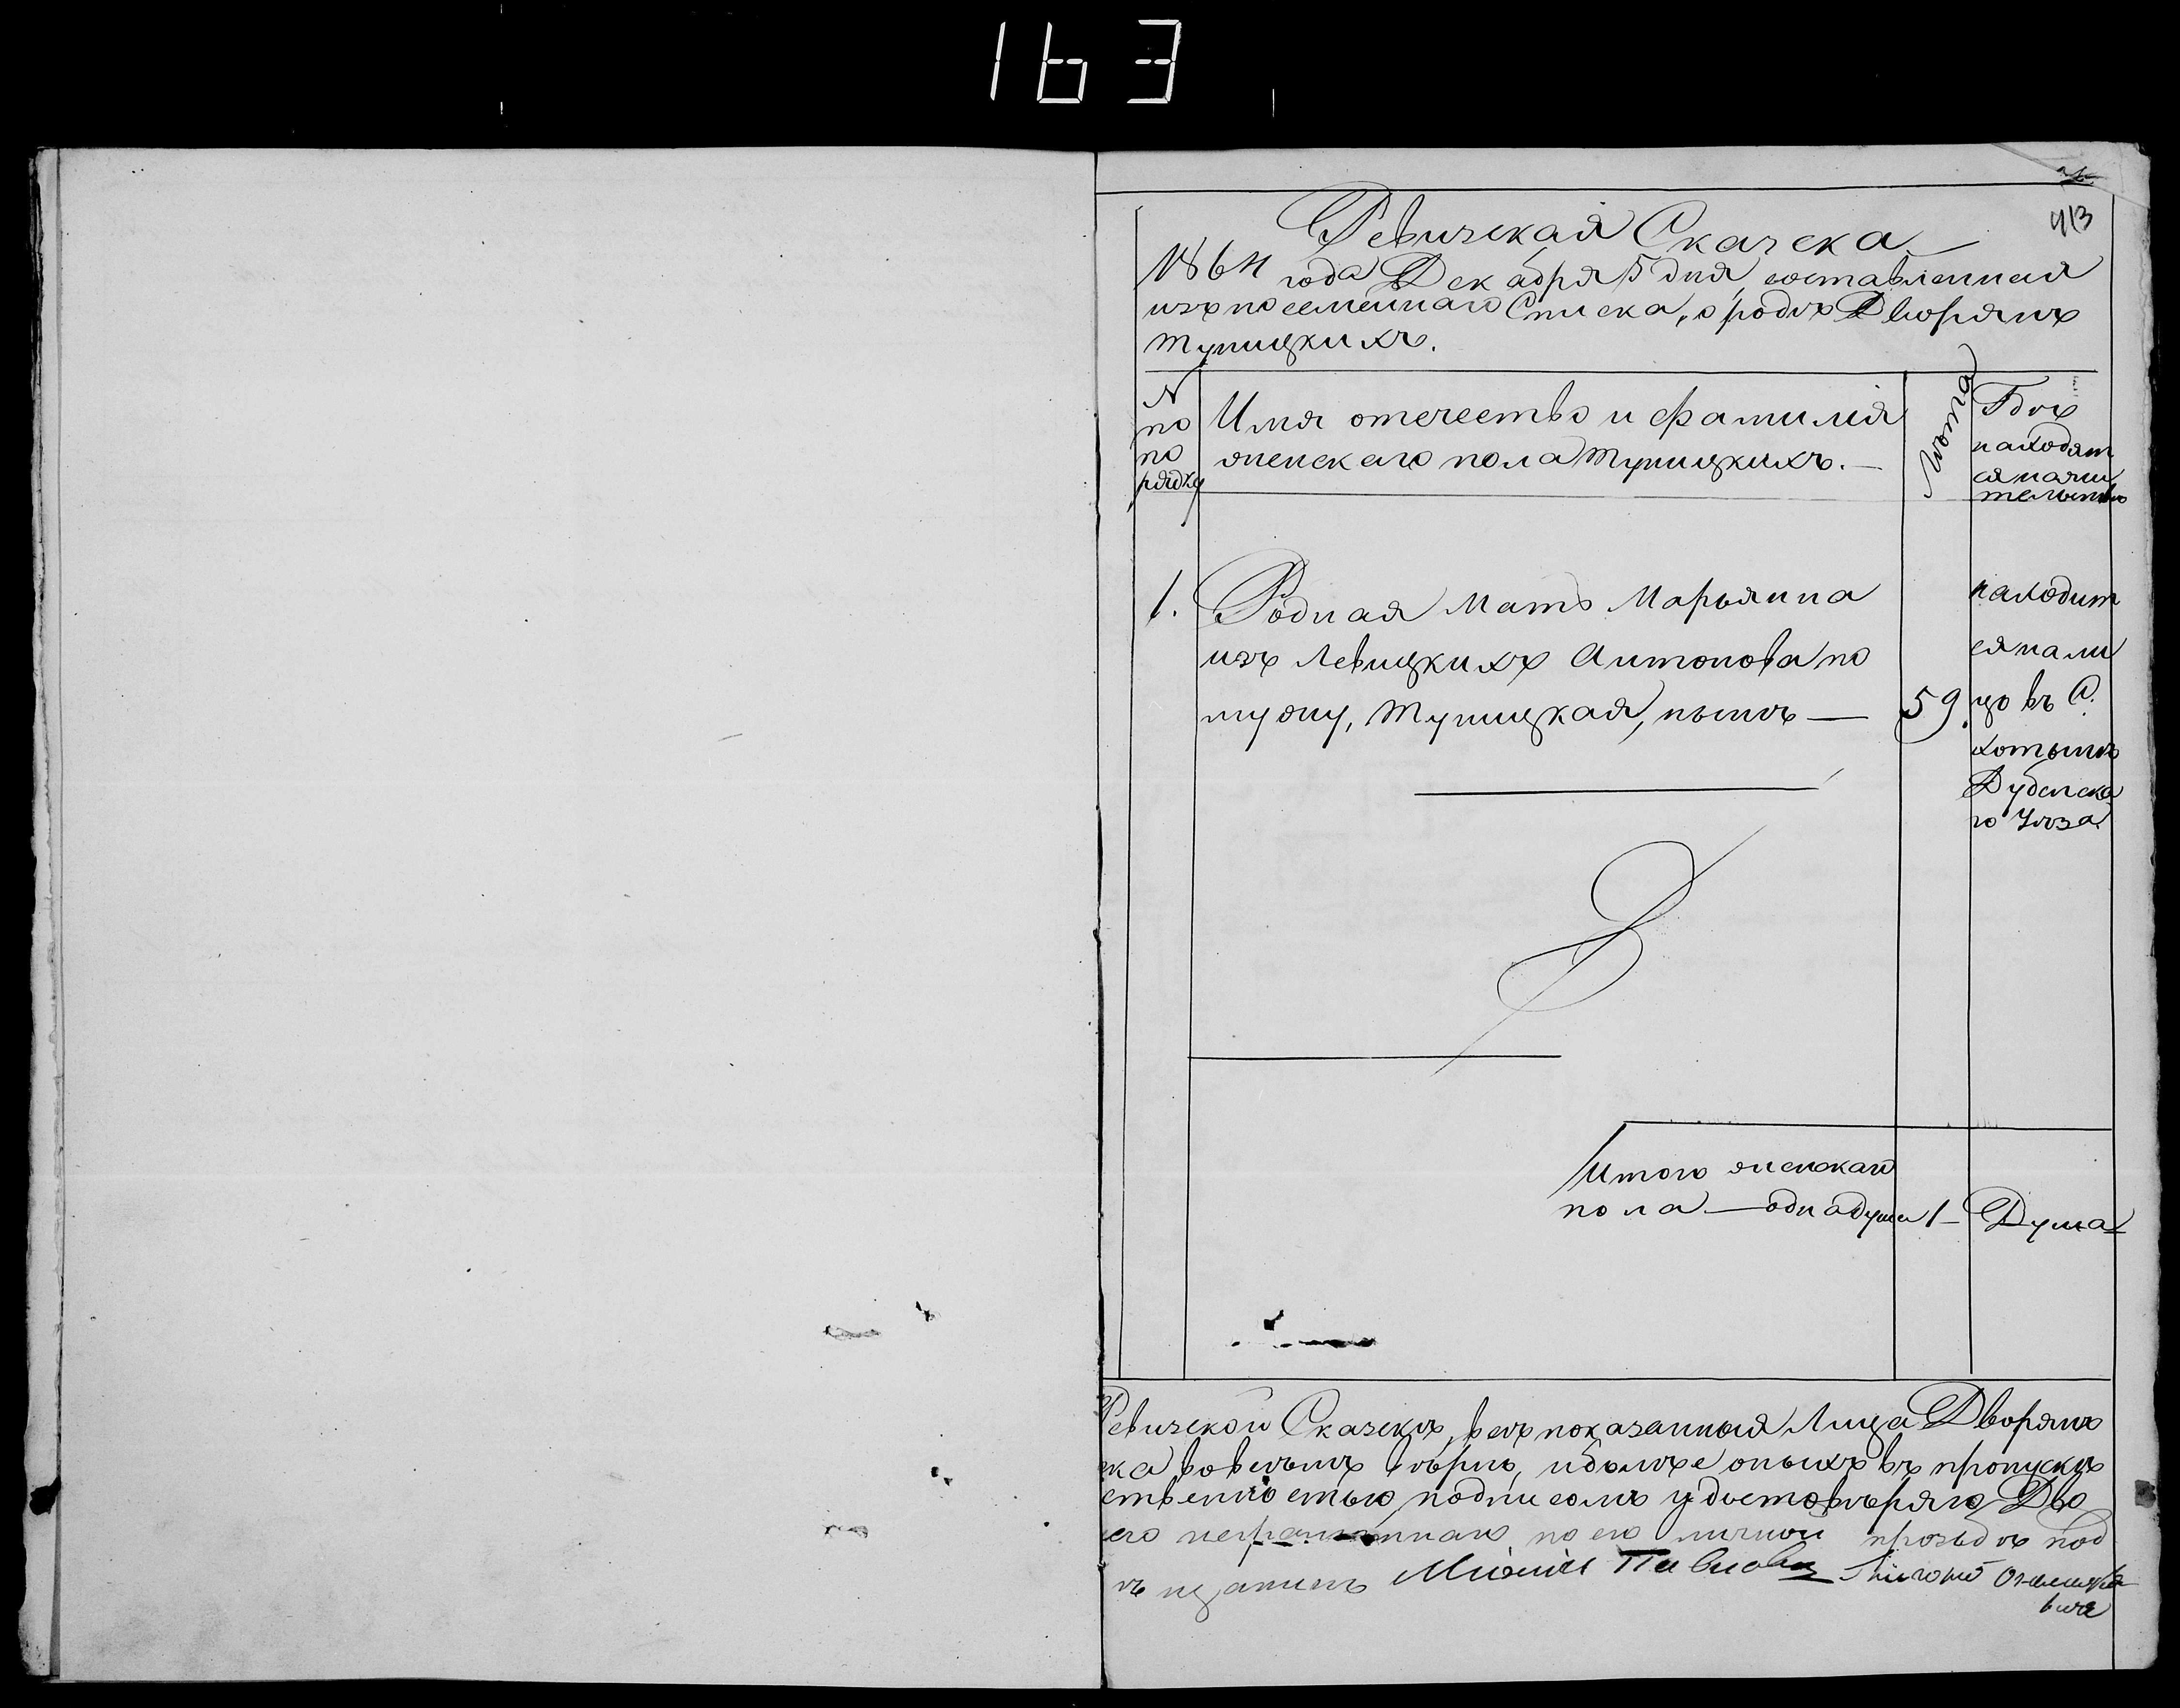 163
413
Ревизская Сказска
1864 года Декабря 5 дня, составленная
изъ посемейнаго Списка, о родѣ Дворянъ
Тупицкихъ.
N
по
по
рядку
Имя отечество и фамилія
женскаго пола Тупицкихъ. —
Лѣта
Гдѣ
находят
ся на жи
тельствѣ
1.
Родная Мать Марьянна
изъ Левицкихъ Антонова по
мужу, Тупицкая, нынѣ —
59.
находит
ся на ли
цо въ С.
Хотынѣ
Дубенска
го Уѣзда
Итого женскаго
пола — одна душа 1 — Душа
Ревизской Сказскѣ, всѣ показанныя Лица Дворянъ
ка вовсѣмъ вѣрны, и болѣе оныхъ въ пропускѣ
ственностью подписомъ удостовѣряю Дво
его неграмотнаго по его личной прозьбѣ под